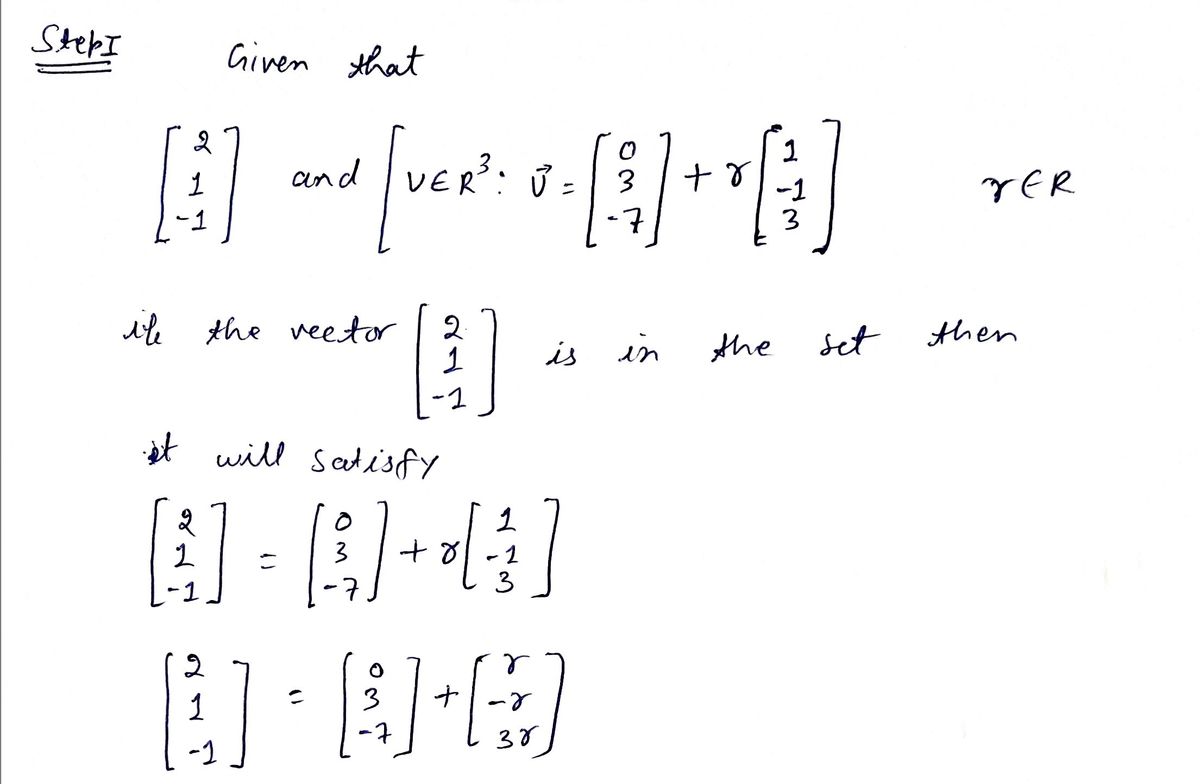 Step I
Given that
[2 1 -1] and [V∈R³: v⃗ = [0 3 -7] + r [1 -1 3] r∈R
if the vector [2 1 -1] is in the set then
it will satisfy
[2 1 -1] = [0 3 -7] + r [1 -1 3]
[2 1 -1] = [0 3 -7] + [r -r 3r]